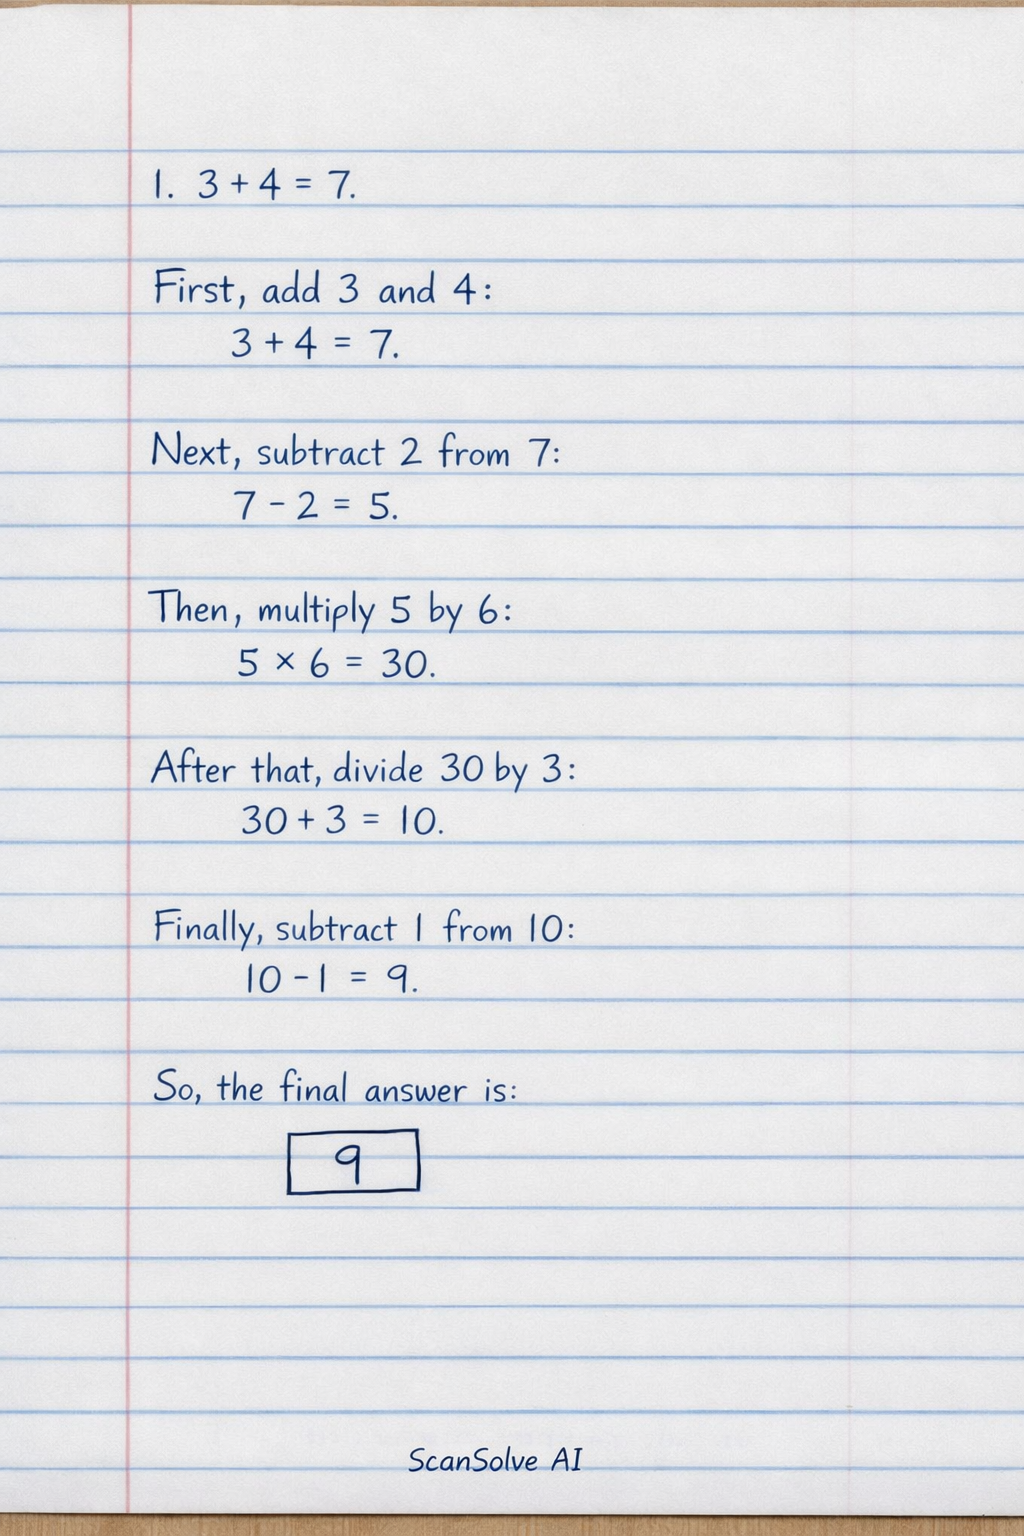 1. 3 + 4 = 7.
First, add 3 and 4:
3 + 4 = 7.
Next, subtract 2 from 7:
7 - 2 = 5.
Then, multiply 5 by 6:
5 × 6 = 30.
After that, divide 30 by 3:
30 + 3 = 10.
Finally, subtract 1 from 10:
10 - 1 = 9.
So, the final answer is:
9
ScanSolve AI